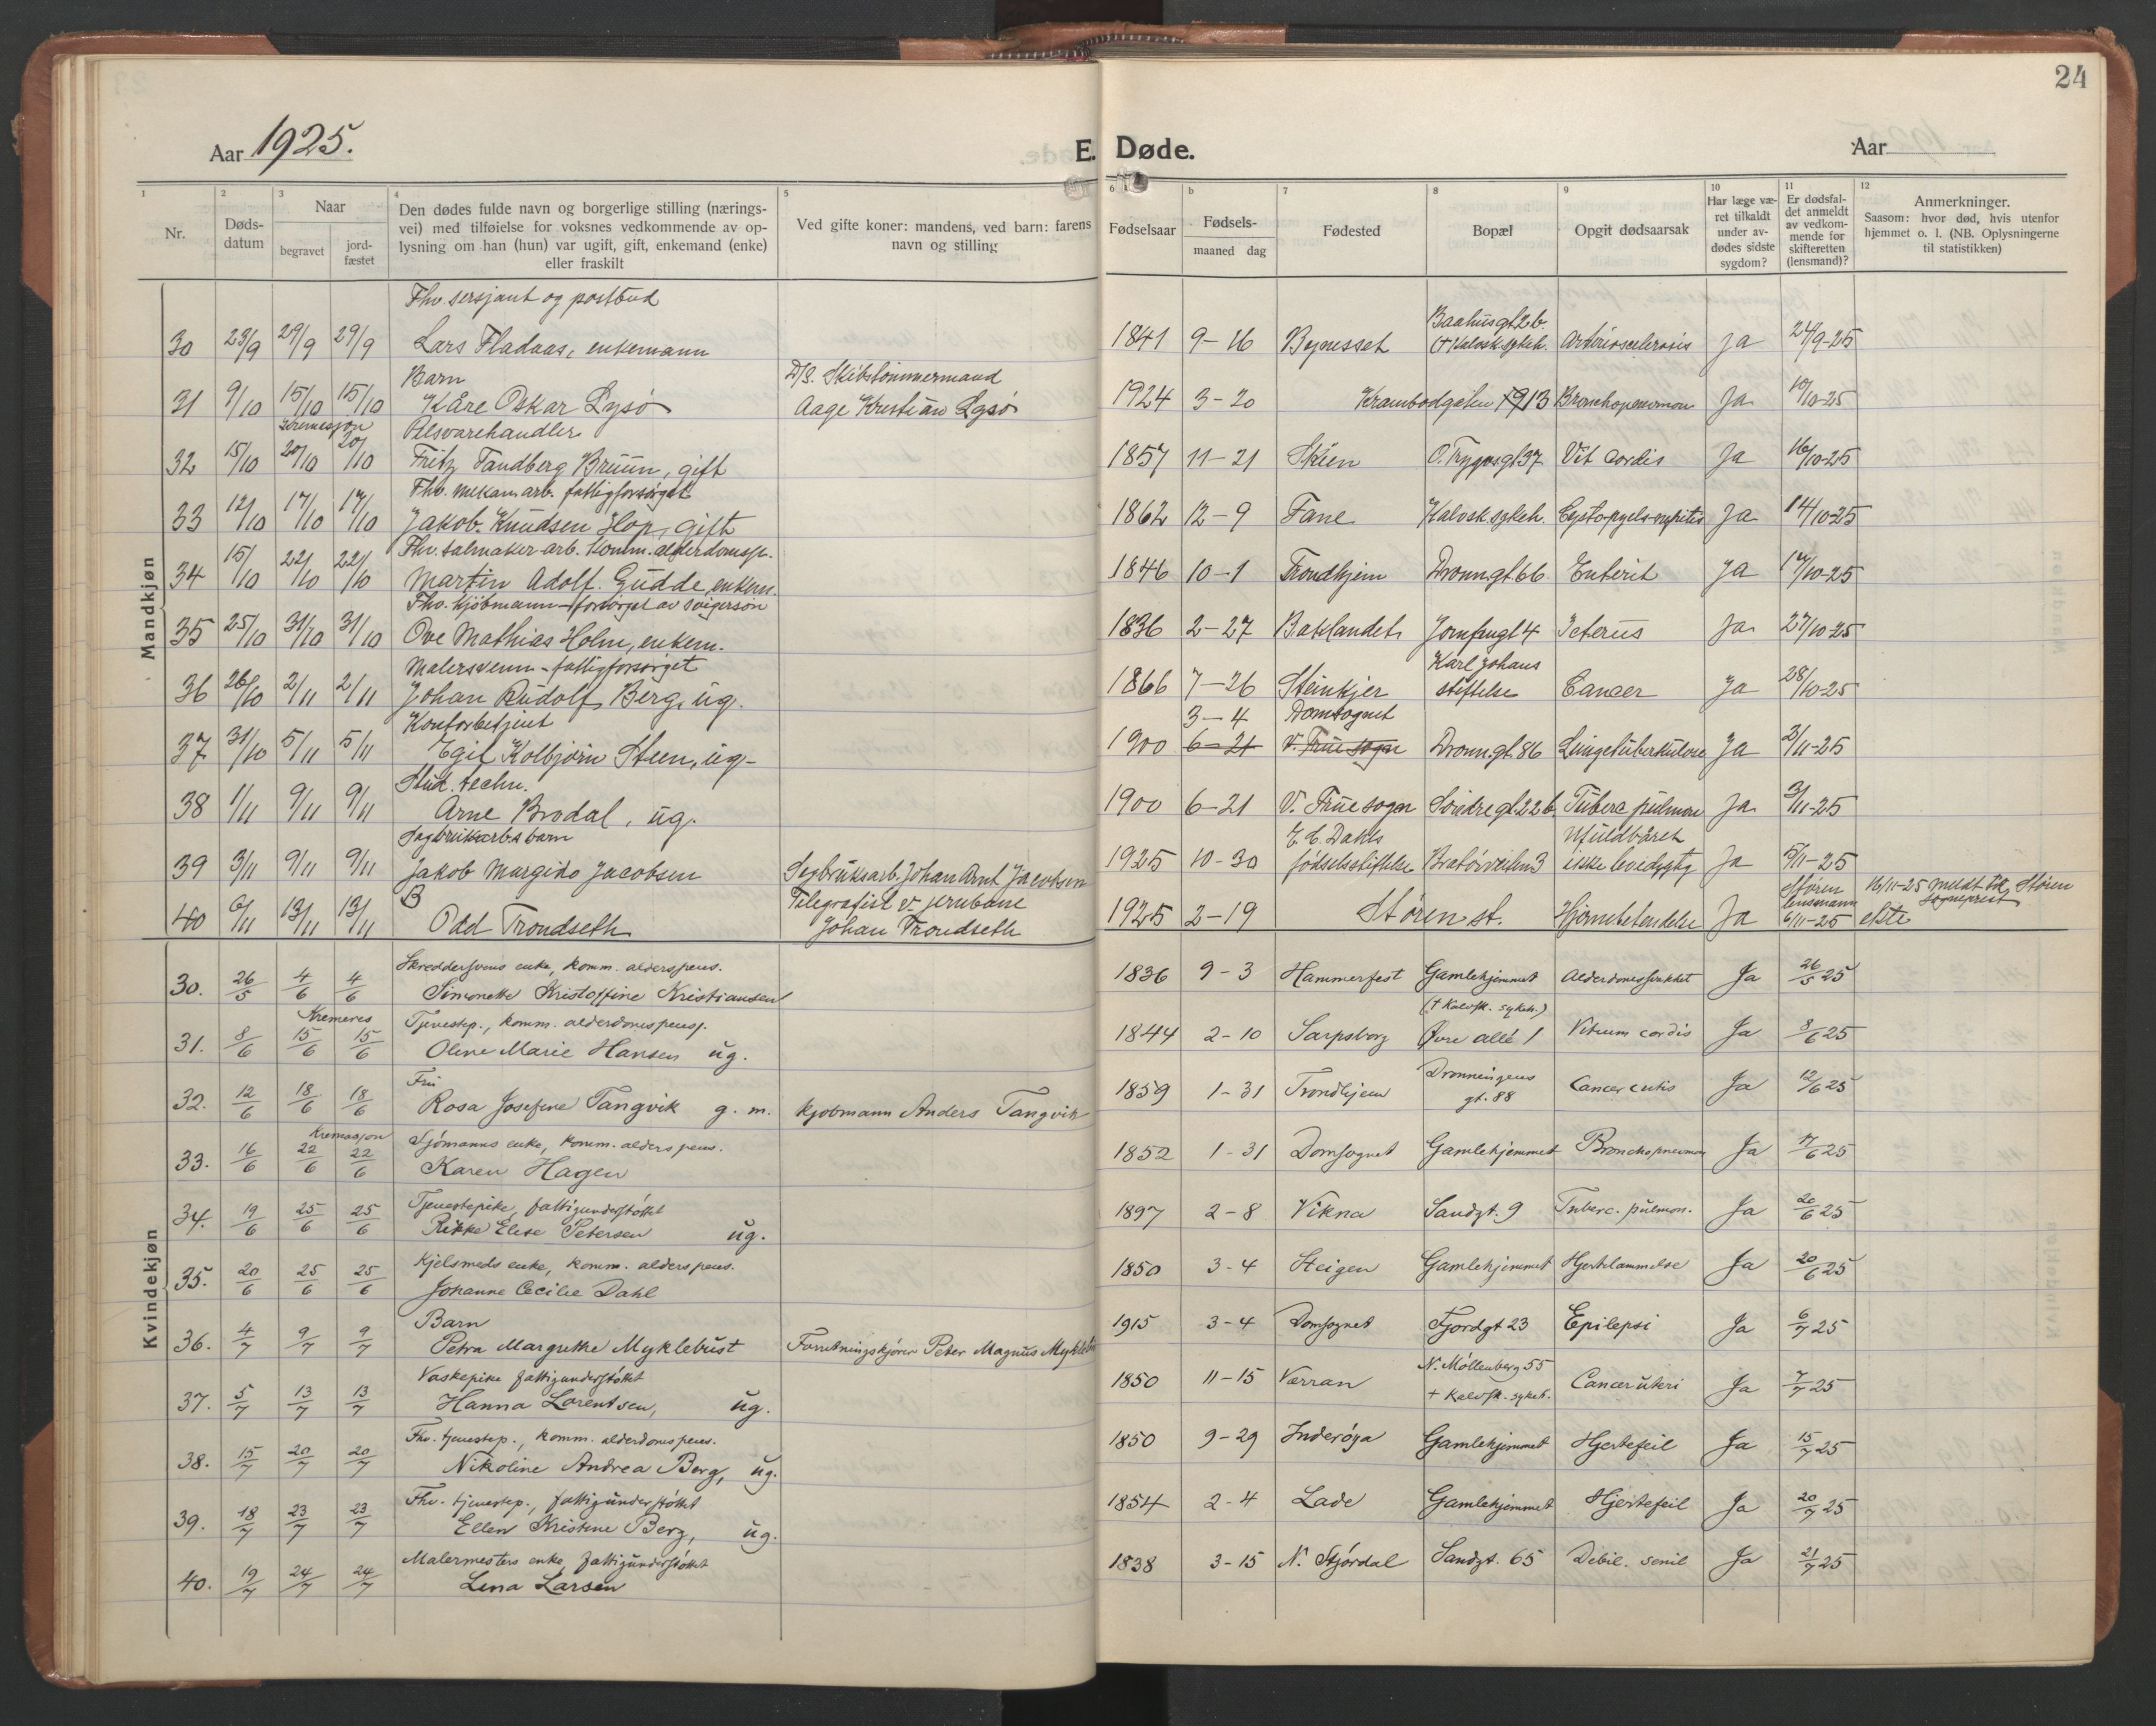 24
Aar 1925.
E. Døde.
Aar
1 2 3 4 5 6 b 7 8 9 10 11 12
Nr.
Døds-
datum
Naar
begravet
jord-
fæstet
Den dødes fulde navn og borgerlige stilling (nærings-
vei) med tilføielse for voksnes vedkommende av op-
lysning om han (hun) var ugift, gift, enkemand (enke)
eller fraskilt
Ved gifte koner: mandens, ved barn: farens
navn og stilling
Fødselsaar
Fødsels-
maaned dag
Fødested
Bopæl
Opgit dødsaarsak
Har læge væ-
ret tilkaldt
under av-
dødes sidste
sygdom?
Er dødsfal-
det anmeldt
av vedkom-
mende for
skifteretten
(lensmand)?
Anmerkninger.
Saasom: hvor død, hvis utenfor
hjemmet o. l. (NB. Oplysningerne
til statistikken)
Mandkjøn
Fhv. sersjant og postbud Baahusgt 2b.
30 23/9 29/9 29/9 Lars Fladaas, enkemann 1841 9-16 Bynesset († Kalvsk. sykeh. Arteriosclerosis Ja 24/9-25
Barn D/S. Skibstømmermand
31 9/10 15/10 15/10 Kåre Oskar Lysø Aage Kristian Lysø 1924 3-20 Krambodgaten 13 Bronchopneumon Ja 10/10-25
Kremasjon Pelsvarehandler
32 15/10 20/10 20/10 Fritz Tandberg Bruun, gift 1857 11-21 Skien O. Trygvsgt. 37 Vit. Cordis Ja 16/10-25
Fhv. mekan. arb. fattigforsørget
33 12/10 17/10 17/10 Jakob Knudsen Hop, gift 1862 12-9 Fane Kalvsk. sykeh. Ja 14/10-25
Fhv. salmaker arb. komm. alderdomsp.
34 15/10 22/10 22/10 Martin Adolf Gudde, enkem. 1846 10-1 Trondhjem Dronn.gt 66 Enterit Ja 17/10-25
Fhv. kjøbmann - forsørget av svigersøn
35 25/10 31/10 31/10 Ove Mathias Holm, enkem. 1836 2-27 Baklandet Jomfrugt 4 Icterus Ja 27/10-25
Malersvenn - fattigforsørget Karl Johans
36 26/10 2/11 2/11 Johan Rudolf Berg, ug. 1866 7-26 Steinkjer stiftelse Cancer Ja 28/10-25
Kontorbetjent 3-4 Domsognet
37 31/10 5/11 5/11 Egil Kolbjørn Steen, ug- 1900 6-21 V. Frue sogn Dronn.gt. 86 Lungetuberkulose Ja 3/11-25
Stud. techn.
38 1/11 9/11 9/11 Arne Brodal, ug. 1900 6-21 V. Frue sogn Søndregt. 22b. Tuberc. pulmon Ja 3/11-25
Sagbruksarb.s barn E. C. Dahls Ufuldbåret
39 3/11 9/11 9/11 Jakob Margido Jacobsen Sagbruksarb. Johan Arnt Jacobsen 1925 10-30 fødselsstiftelse Bratørveiten 3 ikke levedygtig Ja 5/11-25
B Telegrafist v. jernbane Støren lensmann 16/11-25 meldt til Støren sogneprest
40 6/11 13/11 13/11 Odd Trondseth Johan Trondseth 1925 2-19 Støren st. Hjernebetendelse Ja 6/11-25 ekte
Kvindekjøn
Skreddersvens enke, komm. alderspens.
30. 26/5 4/6 4/6 Simonette Kristoffine Kristiansen 1836 9-3 Hammerfest Gamlehjemmet Alderdomssvakhet Ja 26/5 25
Kremeres Tjenestep., komm. alderdomspensj. († Kalvsk. sykeh.)
31. 8/6 15/6 15/6 Oline Marie Hansen ug. 1844 2-10 Sarpsborg Øvre allé 1 Vitium cordis Ja 8/6 25
Fru Dronningens
32. 12/6 18/6 18/6 Rosa Josefine Tangvik g. m. kjøbmann Anders Tangvik 1859 1-31 Trondhjem gt. 88 Cancer cutis Ja 12/6 25
Kremasjon Sjømanns enke, komm. alderspens.
33. 16/6 22/6 22/6 Karen Hagen 1852 1-31 Domsognet Gamlehjemmet Bronchopneumon Ja 17/6 25
Tjenestepike, fattigunderstøttet
34. 19/6 25/6 25/6 Rikke Elise Petersen ug. 1897 2-8 Vikna Sandgt. 9 Tuberc. pulmon. Ja 20/6 25
Kjelsmeds enke, komm. alderspens.
35. 20/6 25/6 25/6 Johanne Cecilie Dahl 1850 3-4 Steigen Gamlehjemmet Hjertelammelse Ja 20/6 25
Barn
36. 4/7 9/7 9/7 Petra Margrethe Myklebust Forretningskjører Peter Magnus Myklebu 1915 3-4 Domsognet Fjordgt 23 Epilepsi Ja 6/7 25
Vaskepike fattigunderstøttet N. Møllenberg 55
37. 5/7 13/7 13/7 Hanna Lorentsen, ug. 1850 11-15 Værran † Kalvsk. sykeh. Cancer uteri Ja 7/7 25
Fhv. tjenestep., komm. alderdomspens.
38. 15/7 20/7 20/7 Nikoline Andrea Berg, ug. 1850 9-29 Inderøya Gamlehjemmet Hjertefeil Ja 15/7 25
Fhv. tjenestep., fattigunderstøttet
39. 18/7 23/7 23/7 Ellen Kristine Berg, ug. 1854 2-4 Lade Gamlehjemmet Hjertefeil Ja 20/7 25
Malermesters enke, fattigunderstøttet
40. 19/7 24/7 24/7 Lena Larsen 1838 3-15 N. Stjørdal Sandgt. 65 Debil. senil Ja 21/7 25